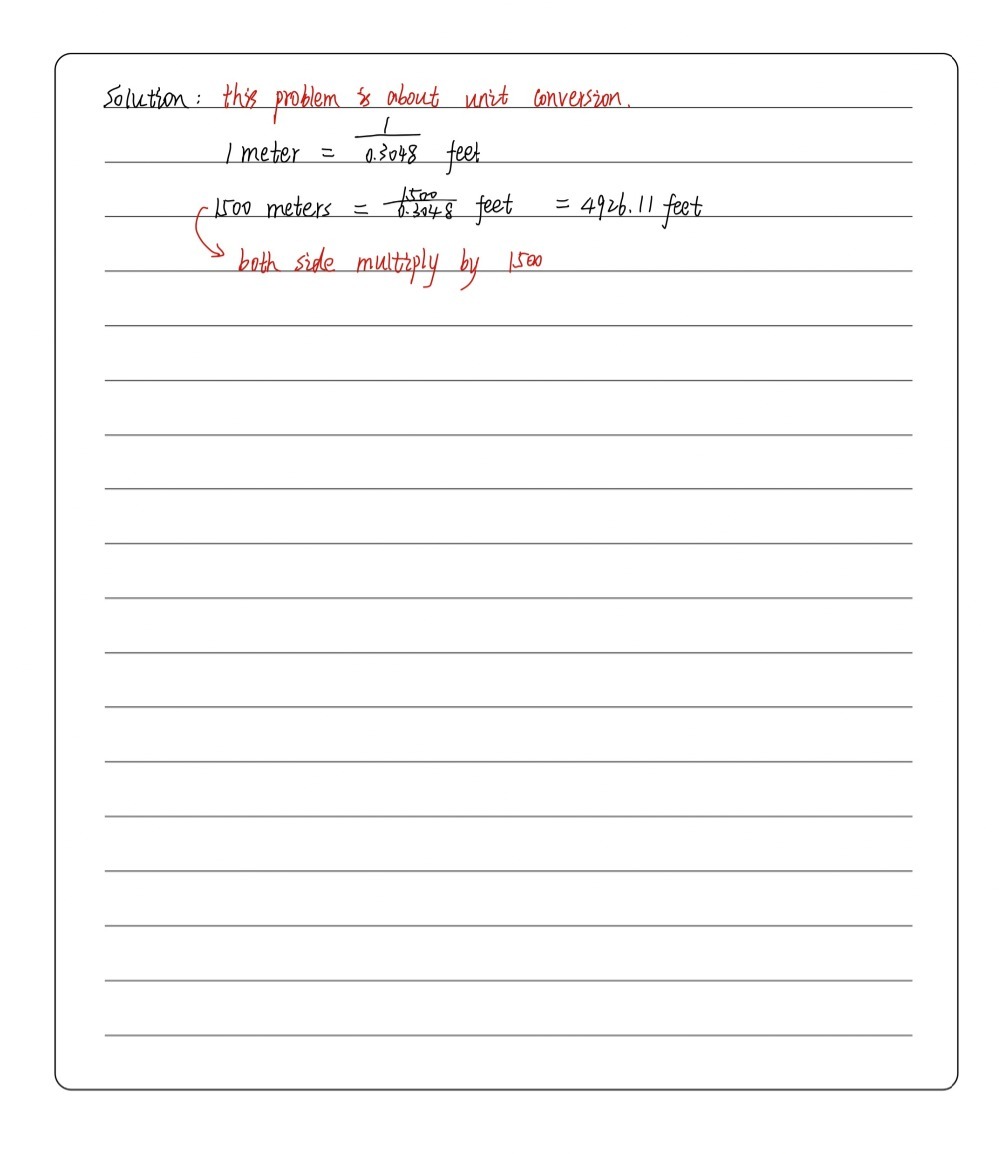 Solution: this problem is about unit conversion.
1 meter = 1/0.3048 feet
1500 meters = 1500/0.3048 feet = 4926.11 feet
both side multiply by 1500